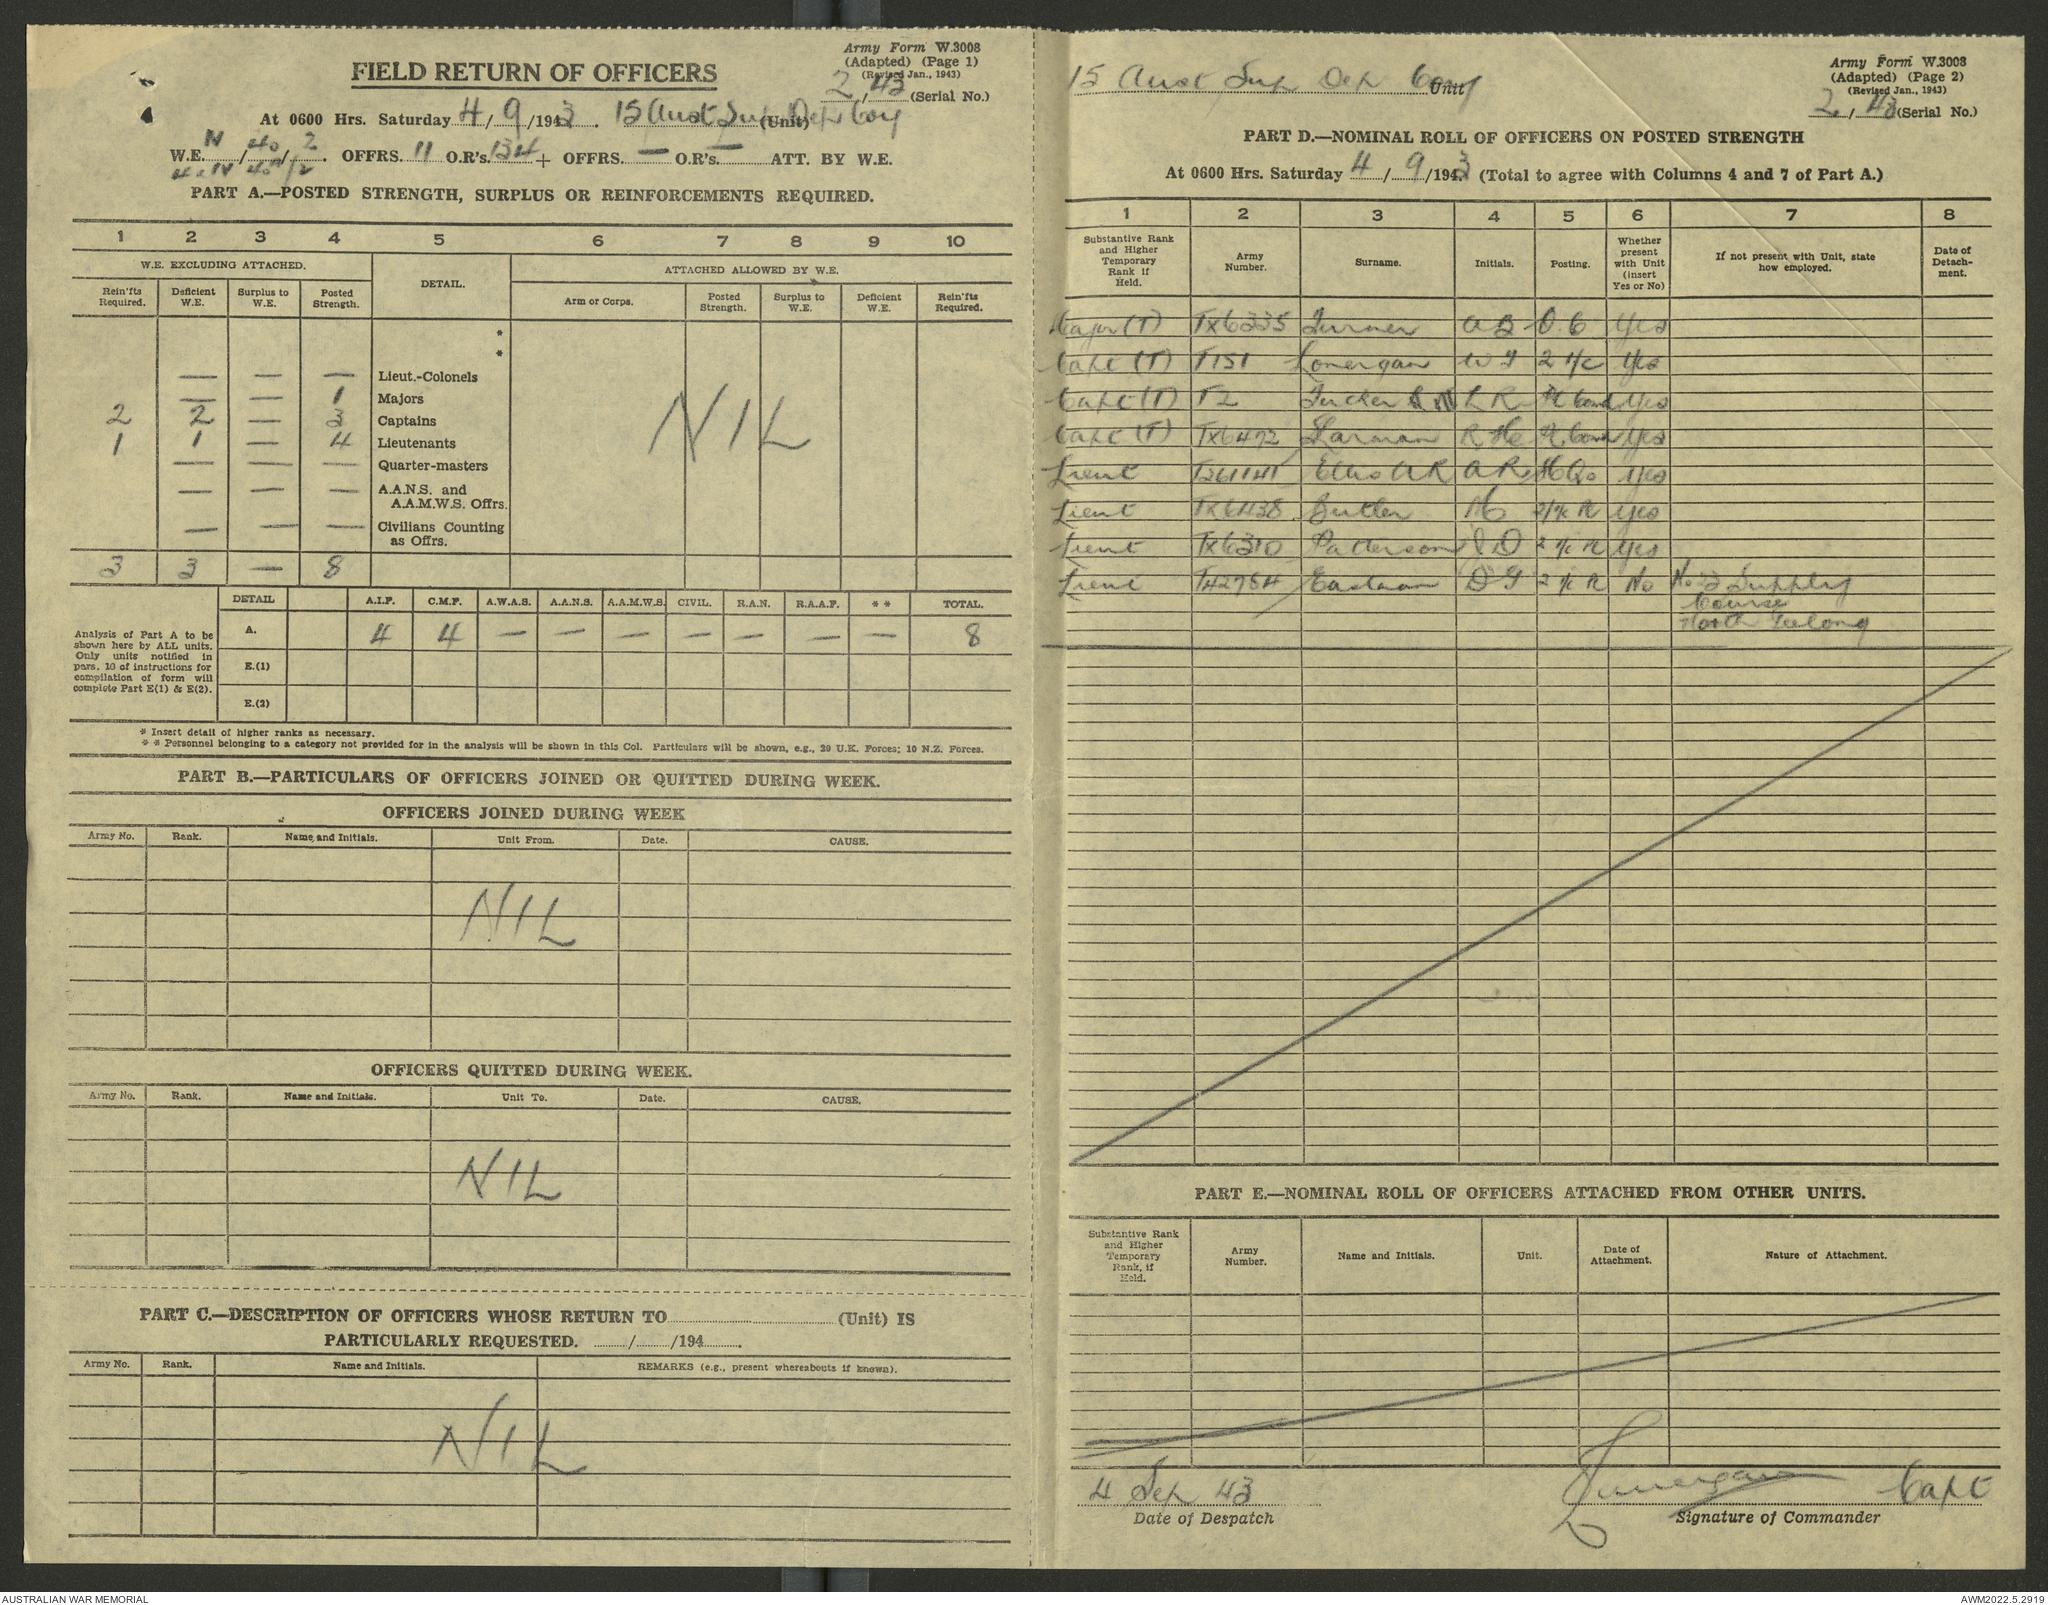 Army Form W.3008
(Adapted) (Page 1)
(Revised Jan., 1943)
FIELD RETURN OF OFFICERS
2, 43 (Serial No.)
At 0600 Hrs. Saturday 4/9/1943. 15 Aust Sup Dep Coy (Unit)
W.E. N/40/2. OFFRS. 11 O.R's. 134 + OFFRS. — O.R's. — ATT. BY W.E.
PART A.—POSTED STRENGTH, SURPLUS OR REINFORCEMENTS REQUIRED.
1 2 3 4 5 6 7 8 9 10
W.E. EXCLUDING ATTACHED. DETAIL. ATTACHED ALLOWED BY W.E.
Rein'fts Required. Deficient W.E. Surplus to W.E. Posted Strength. Arm or Corps. Posted Strength. Surplus to W.E. Deficient W.E. Rein'fts Required.
*
*
— — — Lieut.-Colonels
— — 1 Majors
2 2 — 3 Captains NIL
1 1 — 4 Lieutenants
— — — Quarter-masters
— — — A.A.N.S. and
A.A.M.W.S. Offrs.
— — — Civilians Counting
as Offrs.
3 3 — 8
DETAIL A.I.F. C.M.F. A.W.A.S. A.A.N.S. A.A.M.W.S. CIVIL. R.A.N. R.A.A.F. * * TOTAL.
A. 4 4 — — — — — — — 8
Analysis of Part A to be
shown here by ALL units.
Only units notified in
para. 16 of instructions for
compilation of form will
complete Part E(1) & E(2).
E.(1)
E.(2)
* Insert detail of higher ranks as necessary.
* * Personnel belonging to a category not provided for in the analysis will be shown in this Col. Particulars will be shown, e.g., 20 U.K. Forces; 10 N.Z. Forces.
PART B.—PARTICULARS OF OFFICERS JOINED OR QUITTED DURING WEEK.
OFFICERS JOINED DURING WEEK
Army No. Rank. Name and Initials. Unit From. Date. CAUSE.
NIL
OFFICERS QUITTED DURING WEEK.
Army No. Rank. Name and Initials. Unit To. Date. CAUSE.
NIL
PART C.—DESCRIPTION OF OFFICERS WHOSE RETURN TO (Unit) IS
PARTICULARLY REQUESTED. / /194 .
Army No. Rank. Name and Initials. REMARKS (e.g., present whereabouts if known).
NIL
15 Aust Sup Dep Coy Unit
Army Form W.3008
(Adapted) (Page 2)
(Revised Jan., 1943)
2, 43 (Serial No.)
PART D.—NOMINAL ROLL OF OFFICERS ON POSTED STRENGTH
At 0600 Hrs. Saturday 4/9/1943 (Total to agree with Columns 4 and 7 of Part A.)
1 2 3 4 5 6 7 8
Substantive Rank and Higher Temporary Rank if Held. Army Number. Surname. Initials. Posting. Whether present with Unit (insert Yes or No) If not present with Unit, state how employed. Date of Detachment.
Major (T) TX6335 Turner A B O.C Yes
Capt (T) T151 Lonergan W J 2 i/c Yes
Capt (T) T2 Tucker L R Yes
Capt (T) TX6472 Harman R Yes
Lieut T261141 Ellis A R A R HQs Yes
Lieut TX6438 Butler Yes
Lieut TX6310 Patterson J D 2 i/c R Yes
Lieut T42784 Eastman D G 2 i/c R No No. 3 Supply
Course
North Geelong
PART E.—NOMINAL ROLL OF OFFICERS ATTACHED FROM OTHER UNITS.
Substantive Rank and Higher Temporary Rank, if Held. Army Number. Name and Initials. Unit. Date of Attachment. Nature of Attachment.
4 Sep 43 Lonergan Capt
Date of Despatch Signature of Commander
AUSTRALIAN WAR MEMORIAL AWM2022.5.2919